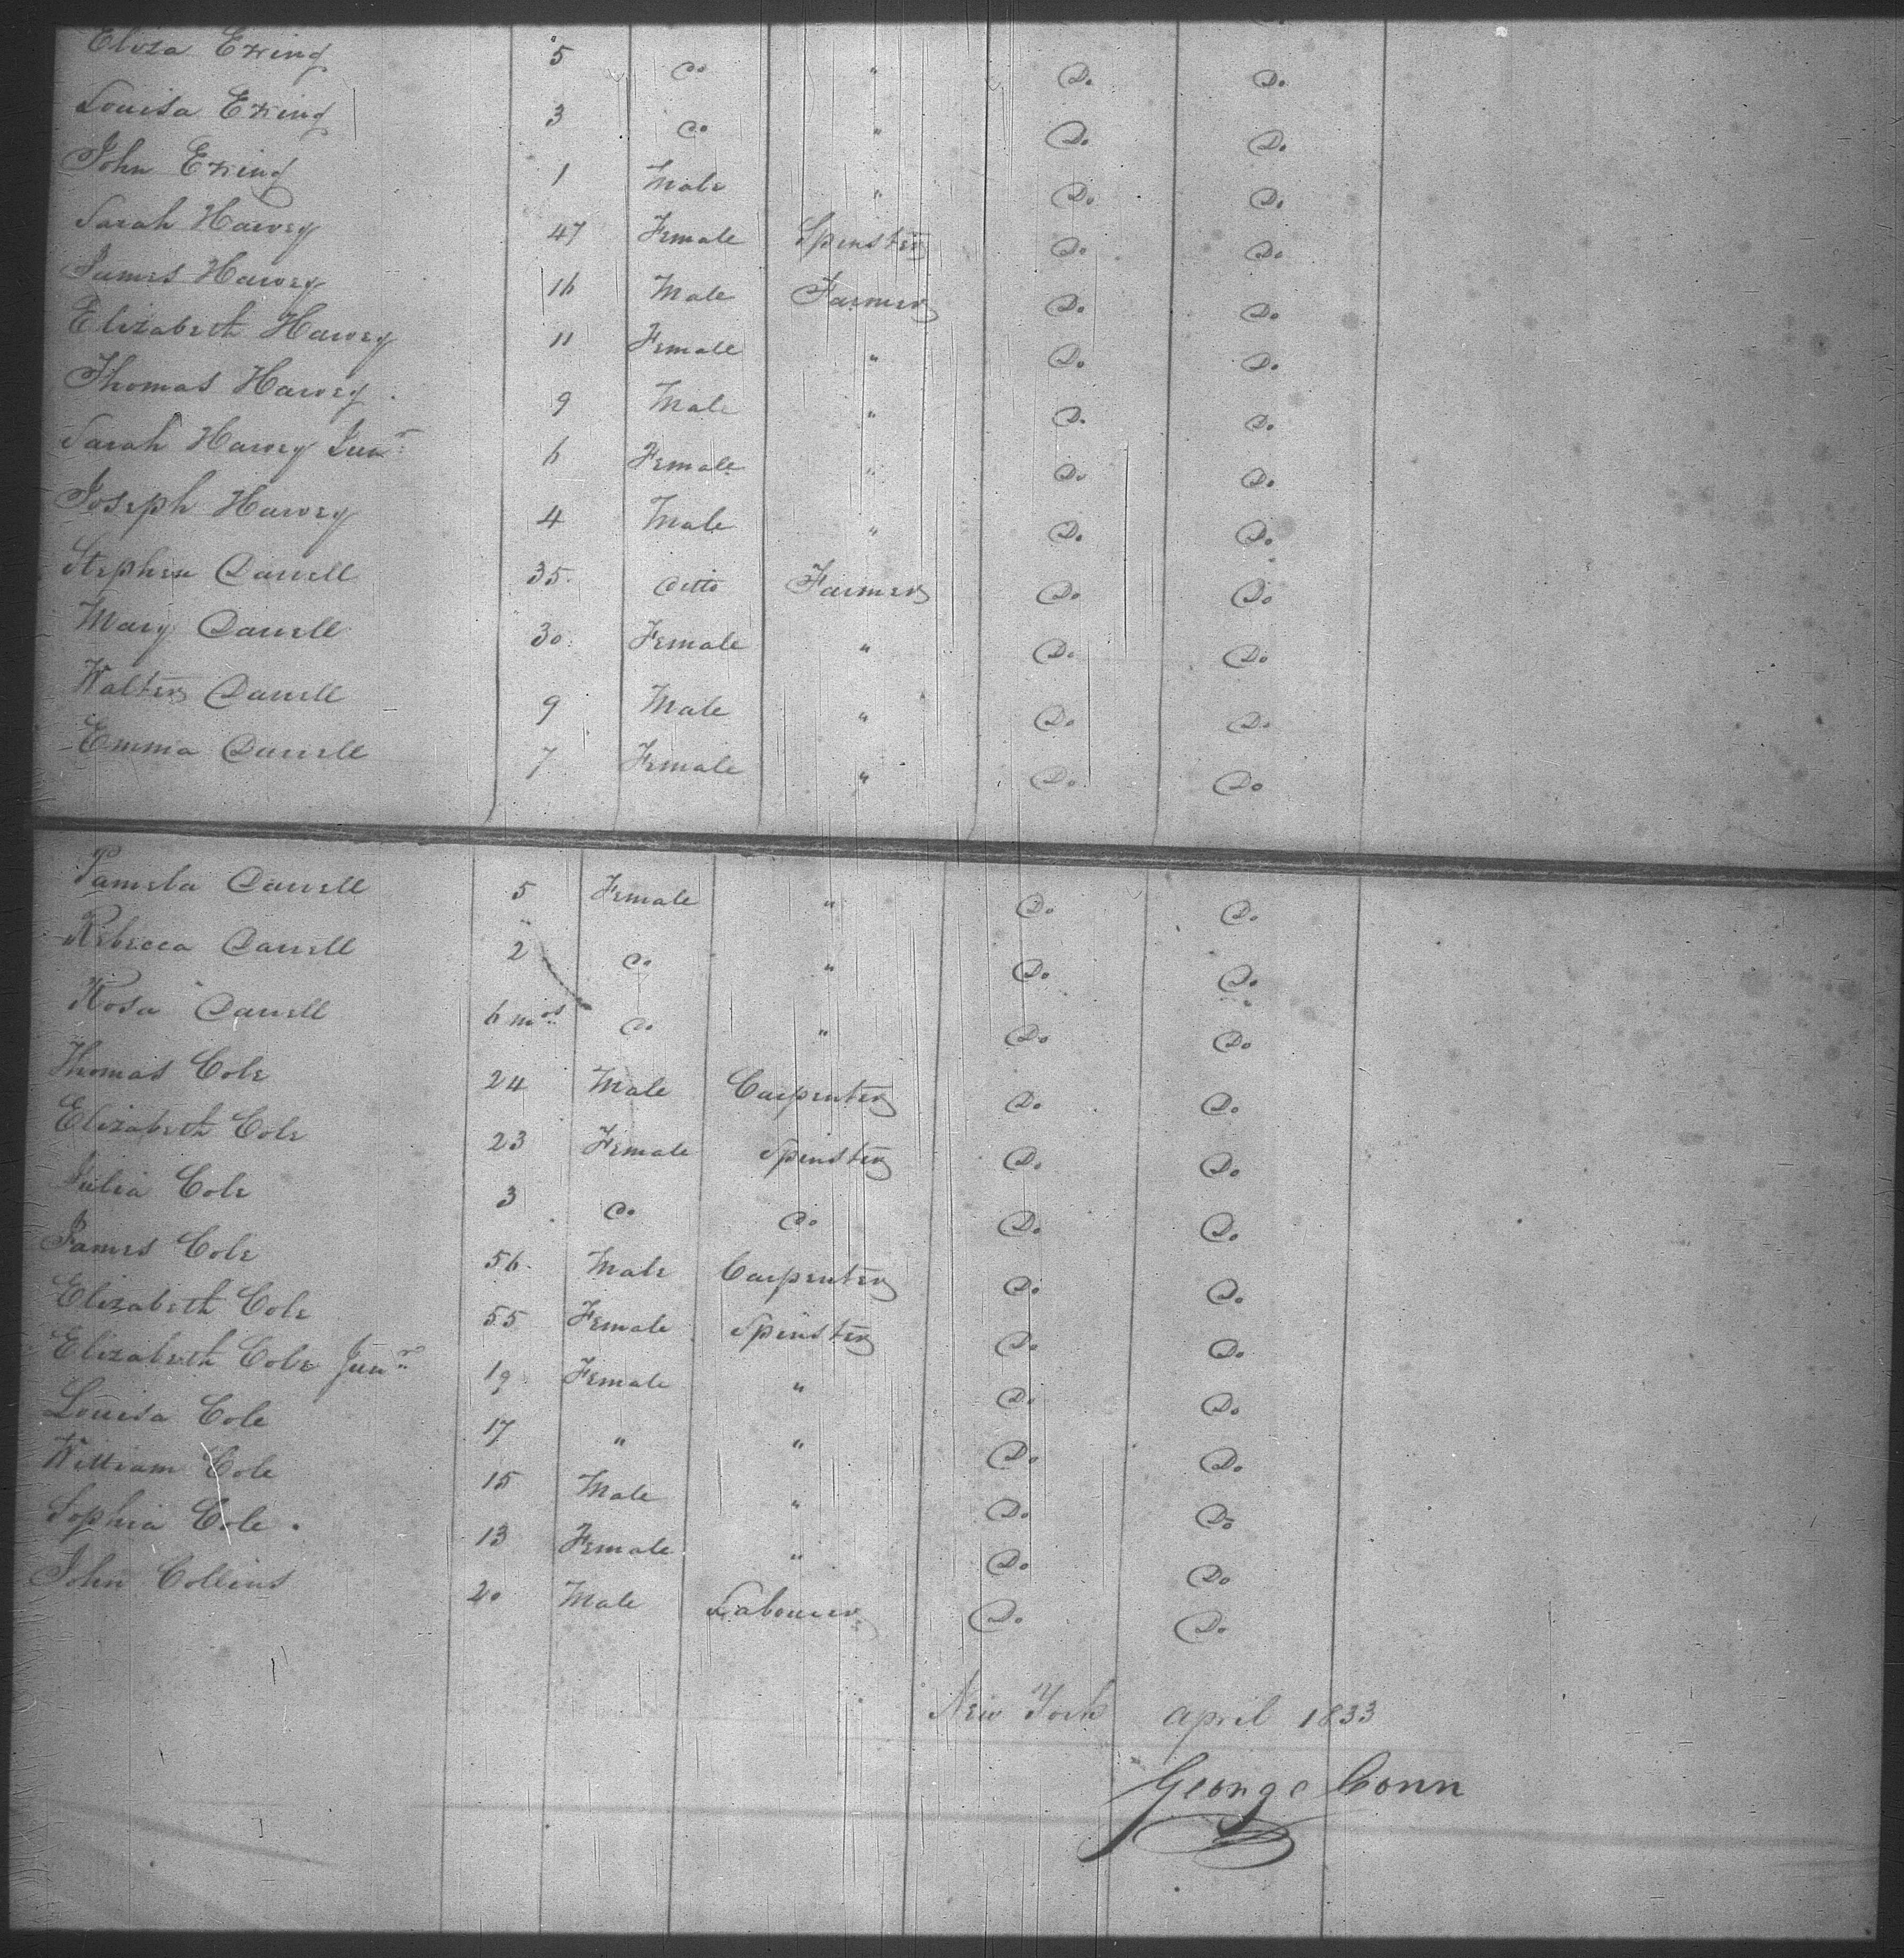 Eliza Exeing 5 do " Do. Do.
Louisa Exeing 3 do " Do. Do.
John Exeing 1 Male " Do Do.
Sarah Harvey 47 Female Spinster Do. Do.
James Harvey 16 Male Farmer Do. Do.
Elizabeth Harvey 11 Female " Do. Do.
Thomas Harvey 9 Male " Do. Do.
Sarah Harvey Junr 6 Female " Do. Do.
Joseph Harvey 4 Male " Do. Do.
Stephen Darrell 35 ditto Farmer Do Do
Mary Darrell 30 Female " Do. Do
Walter Darrell 9 Male " Do. Do.
Emma Darrell 7 Female " Do. Do
Pamela Darrell 5 Female " Do. Do.
Rebecca Darrell 2 do " Do. Do.
Rosa Darrell 6 mos do " Do Do
Thomas Cole 24 Male Carpenter Do. Do.
Elizabeth Cole 23 Female Spinster Do. Do.
Julia Cole 3 do do Do. Do.
James Cole 56 Male Carpenter Do. Do.
Elizabeth Cole 55 Female Spinster Do. Do.
Elizabeth Cole Junr 19 Female " Do. Do.
Louisa Cole 17 " " Do. Do.
William Cole 15 Male " Do. Do
Sophia Cole 13 Female " Do. Do
John Collins 20 Male Labourer Do. Do.
New York April 1833
George Conn